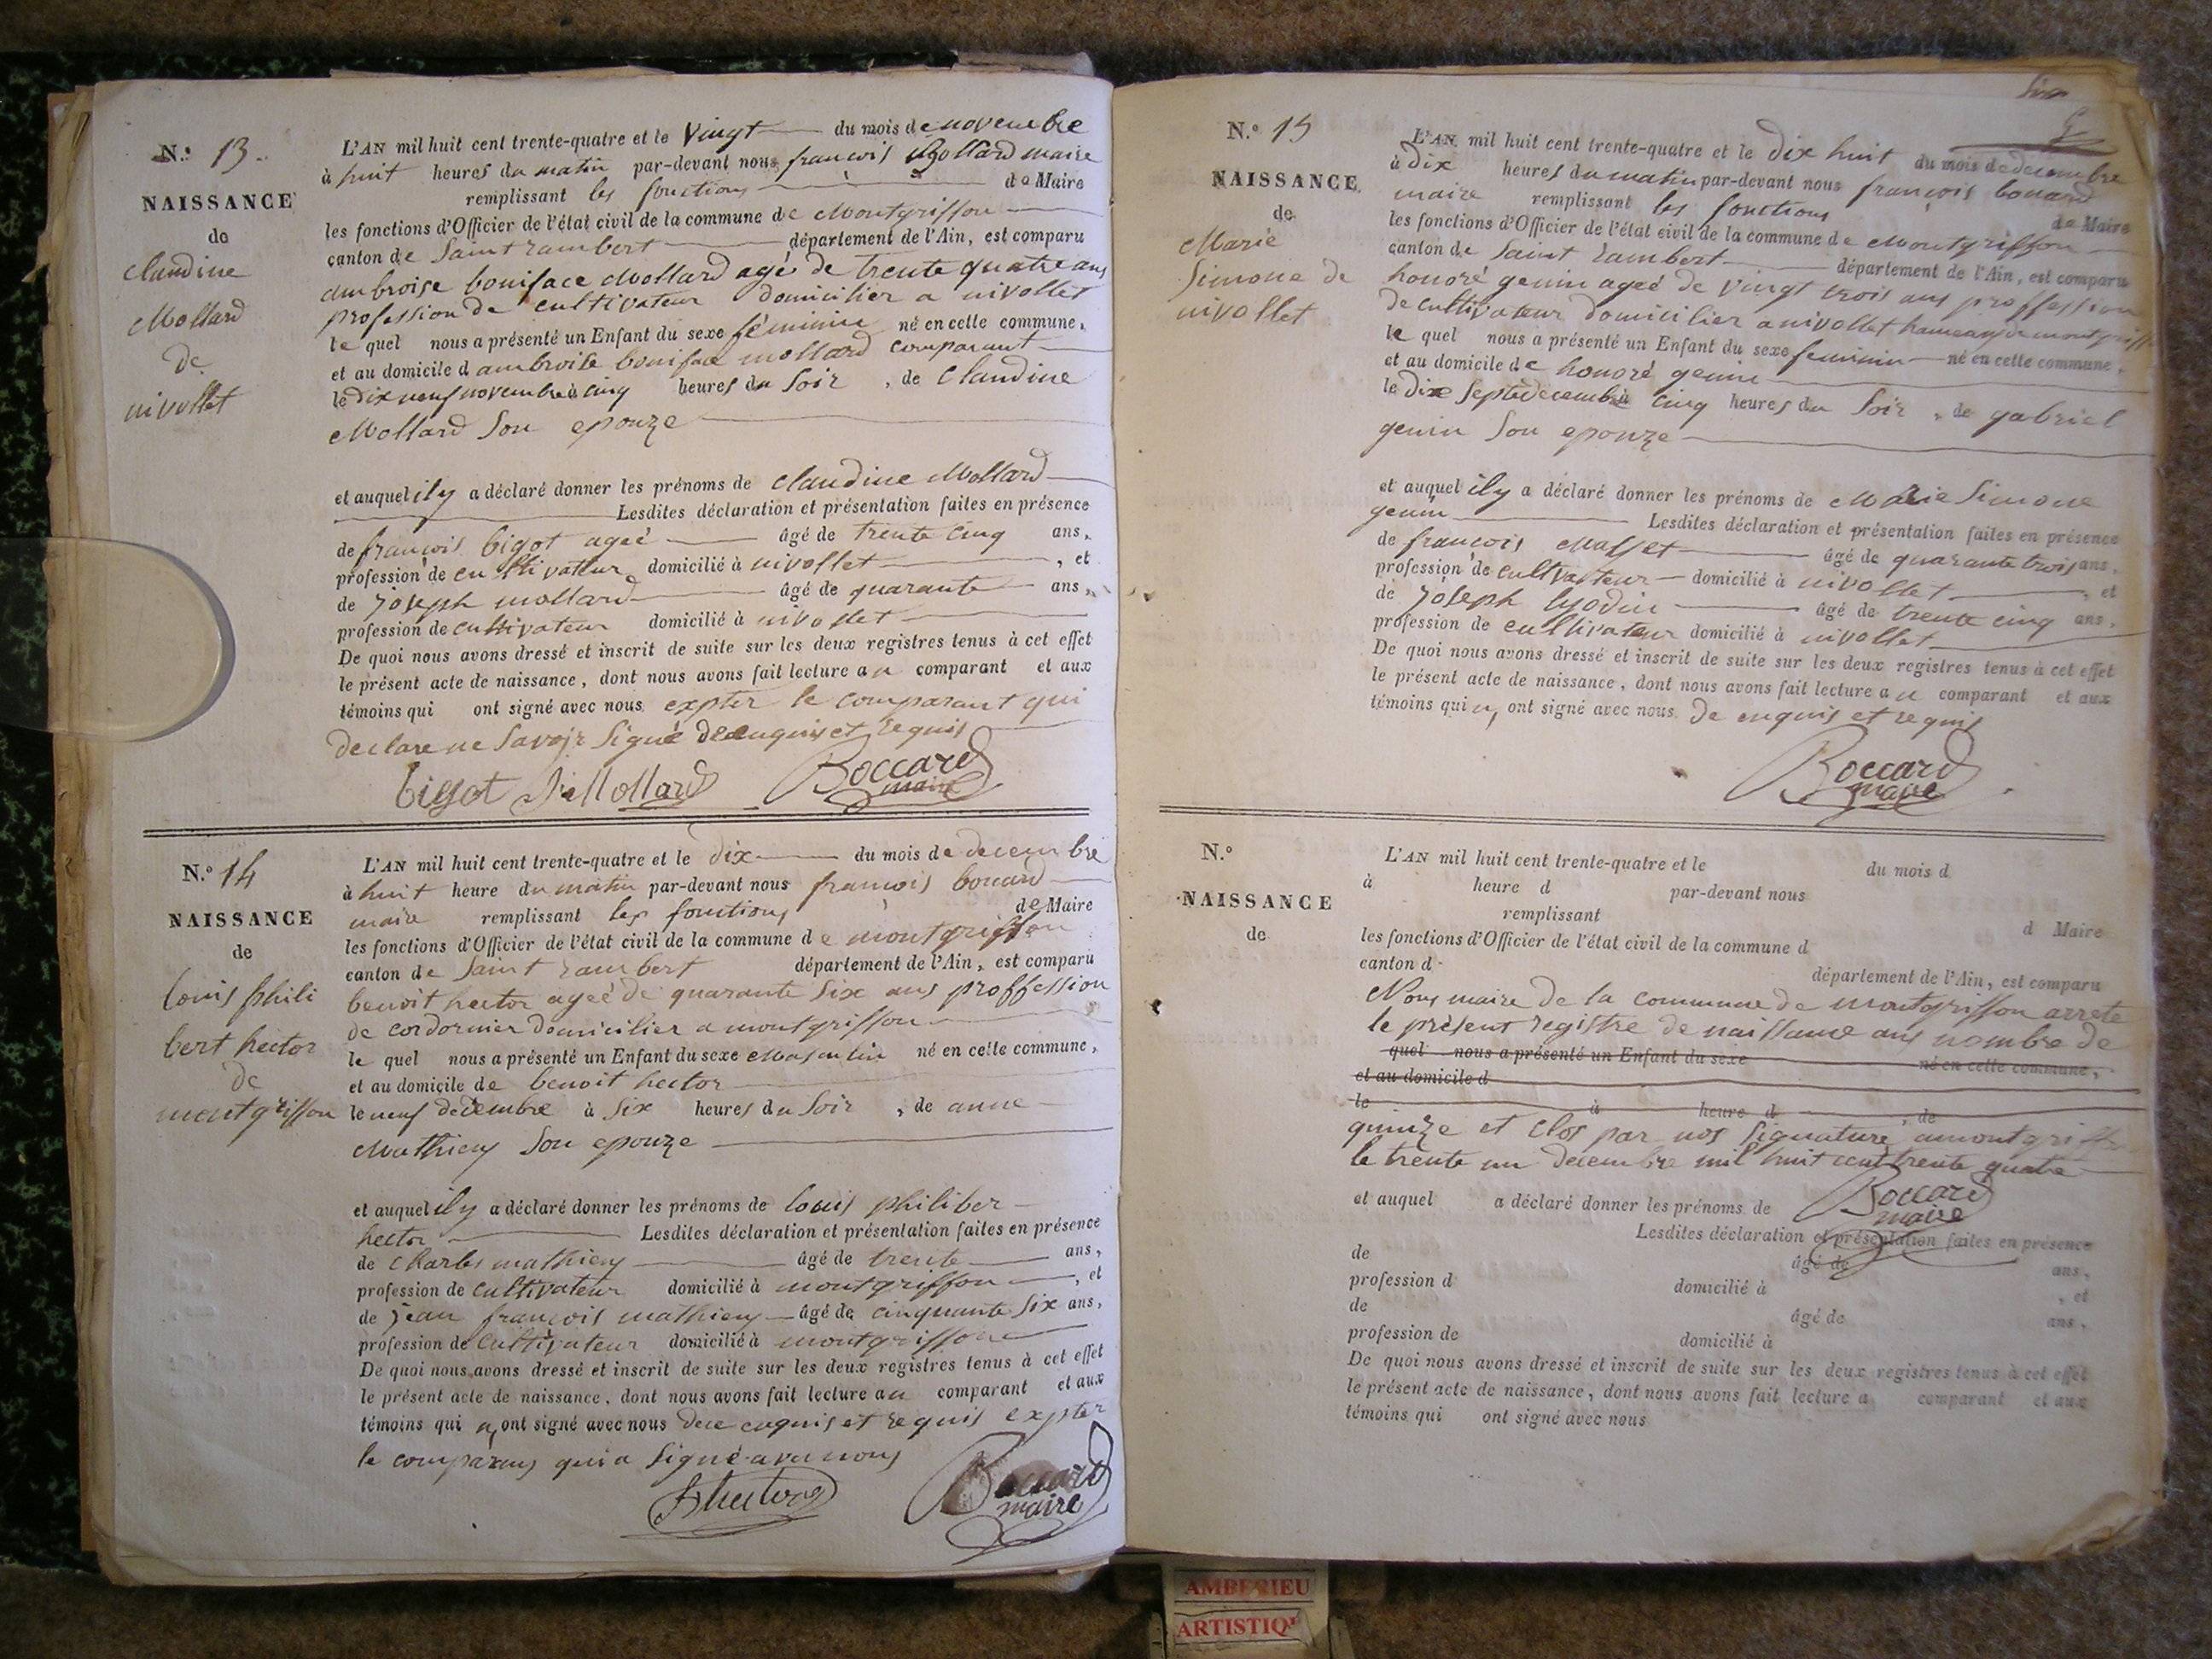 N.º 13.
NAISSANCE
de
claudine
Mollard
de
nivollet
L'AN mil huit cent trente-quatre et le vingt du mois de novembre
à huit heures du matin par-devant nous françois maire
remplissant les fonctions de Maire
les fonctions d'Officier de l'état civil de la commune de Montgriffon
canton de Saint rambert département de l'Ain, est comparu
ambroise boniface Mollard agé de trente quatre ans
profession de cultivateur domicilier a nivollet
le quel nous a présenté un Enfant du sexe féminin né en cette commune,
et au domicile d ambroise boniface mollard comparant
le dix neuf novembre à cinq heures du soir, de claudine
Mollard son epouze
et auquel il y a déclaré donner les prénoms de claudine Mollard
Lesdites déclaration et présentation faites en présence
de françois bigot ageé âgé de trente cinq ans,
profession de cultivateur domicilié à nivollet, et
de joseph mollard âgé de quarante ans,
profession de cultivateur domicilié à nivollet
De quoi nous avons dressé et inscrit de suite sur les deux registres tenus à cet effet
le présent acte de naissance, dont nous avons fait lecture au comparant et aux
témoins qui ont signé avec nous expter le comparant qui
declare ne savoir signé de enquis et requis
bigot Mollard Boccard
maire
N.º 14
NAISSANCE
de
louis phili
bert hector
de
montgriffon
L'AN mil huit cent trente-quatre et le dix du mois de decembre
à huit heure du matin par-devant nous françois bocard
maire remplissant les fonctions de Maire
les fonctions d'Officier de l'état civil de la commune de montgriffon
canton de Saint rambert département de l'Ain, est comparu
benoit hector ageé de quarante six ans proffession
de cordornier domicilier a montgriffon
le quel nous a présenté un Enfant du sexe Masculin né en cette commune,
et au domicile de benoit hector
le neuf decembre à six heures du soir, de anne
Mathieu son epouze
et auquel il y a déclaré donner les prénoms de louis philiber
hector Lesdites déclaration et présentation faites en présence
de charles mathieu âgé de trente ans,
profession de cultivateur domicilié à montgriffon, et
de jean françois mathieu âgé de cinquante six ans,
profession de cultivateur domicilié à montgriffon
De quoi nous avons dressé et inscrit de suite sur les deux registres tenus à cet effet
le présent acte de naissance, dont nous avons fait lecture au comparant et aux
témoins qui n'ont signé avec nous de enquis et requis expter
le comparans qui a signé avec nous
hector Boccard
maire
N.º 15
NAISSANCE
de
Marie
Simone de
nivollet
L'AN mil huit cent trente-quatre et le dix huit du mois de decembre
à dix heures du matin par-devant nous françois bocard
maire remplissant les fonctions de Maire
les fonctions d'Officier de l'état civil de la commune de Montgriffon
canton de Saint rambert département de l'Ain, est comparu
honoré genin ageé de vingt trois ans proffession
de cultivateur domicilier a nivollet hameau de
le quel nous a présenté un Enfant du sexe feminin né en cette commune,
et au domicile de honoré genin
le dix sept decembre à cinq heures du soir, de gabriel
genin son epouze
et auquel il y a déclaré donner les prénoms de Marie Simone
genin Lesdites déclaration et présentation faites en présence
de françois Masset âgé de quarante trois ans,
profession de cultivateur domicilié à nivollet, et
de joseph âgé de trente cinq ans,
profession de cultivateur domicilié à nivollet
De quoi nous avons dressé et inscrit de suite sur les deux registres tenus à cet effet
le présent acte de naissance, dont nous avons fait lecture au comparant et aux
témoins qui n'ont signé avec nous de enquis et requis
Boccard
maire
N.º
NAISSANCE
de
L'AN mil huit cent trente-quatre et le du mois d
à heure d par-devant nous
remplissant d Maire
les fonctions d'Officier de l'état civil de la commune d
canton d département de l'Ain, est comparu
Nous maire de la commune de montgriffon arrete
le présent registre de naissance aus nombre de
quel nous a présenté un Enfant du sexe né en cette commune,
et au domicile d
le à heure d, de
quinze et clos par nos signature
le trente un decembre mil huit cent trente quatre
et auquel a déclaré donner les prénoms de Boccard
maire
Lesdites déclaration et présentation faites en présence
de âgé de ans,
profession d domicilié à, et
de âgé de ans,
profession de domicilié à
De quoi nous avons dressé et inscrit de suite sur les deux registres tenus à cet effet
le présent acte de naissance, dont nous avons fait lecture a comparant et aux
témoins qui ont signé avec nous
AMBERIEU
ARTISTIQ